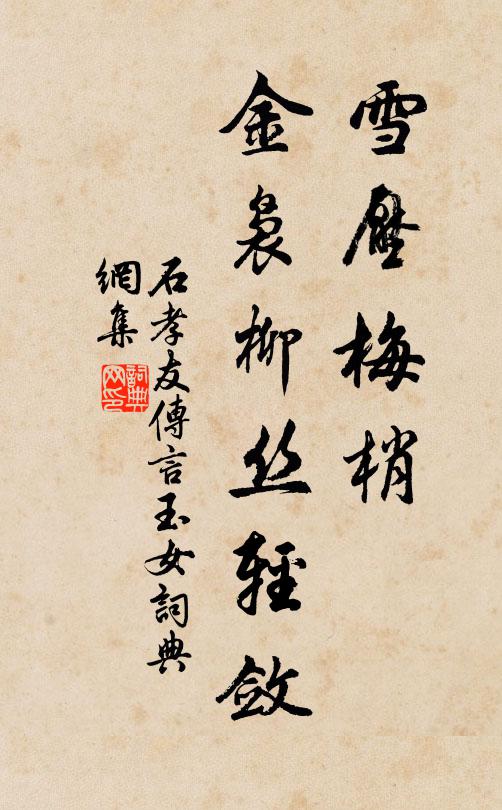 雪壓梅梢
金裊柳丝輕斂
石孝友傳言玉女詞典
網集
詞典
网印